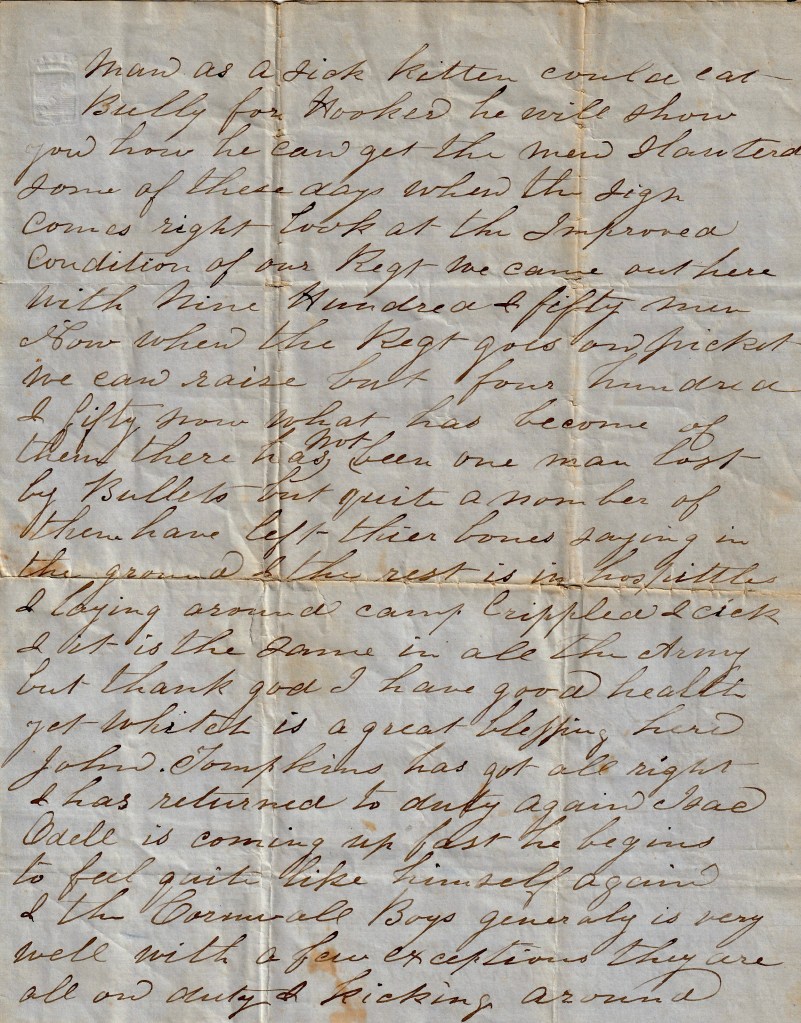 Man as a sick kitten could eat
Bully for Hooker he will show
you how he can get the men Slauterd
some of these days when the sign
comes right look at the Improved
Condition of our Regt We came out here
With Nine Hundred & fifty men
Now when the Regt goes on picket
We can raise but four hundred
& fifty now what has become of
them there has not been one man lost
by Bullets but quite a nomber of
them have left thier bones saying in
the ground & the rest is in hospittles
& laying around camp Crippled & cick
& it is the same in all the Army
but thank god I have good health
yet whitch is a great blessing here
John. Tompkins has got all right
& has returned to duty again Isac
Odell is coming up fast he begins
to feel quite like himself again
& the Cornwall Boys generaly is very
well with a few exceptions they are
all on duty & kicking around